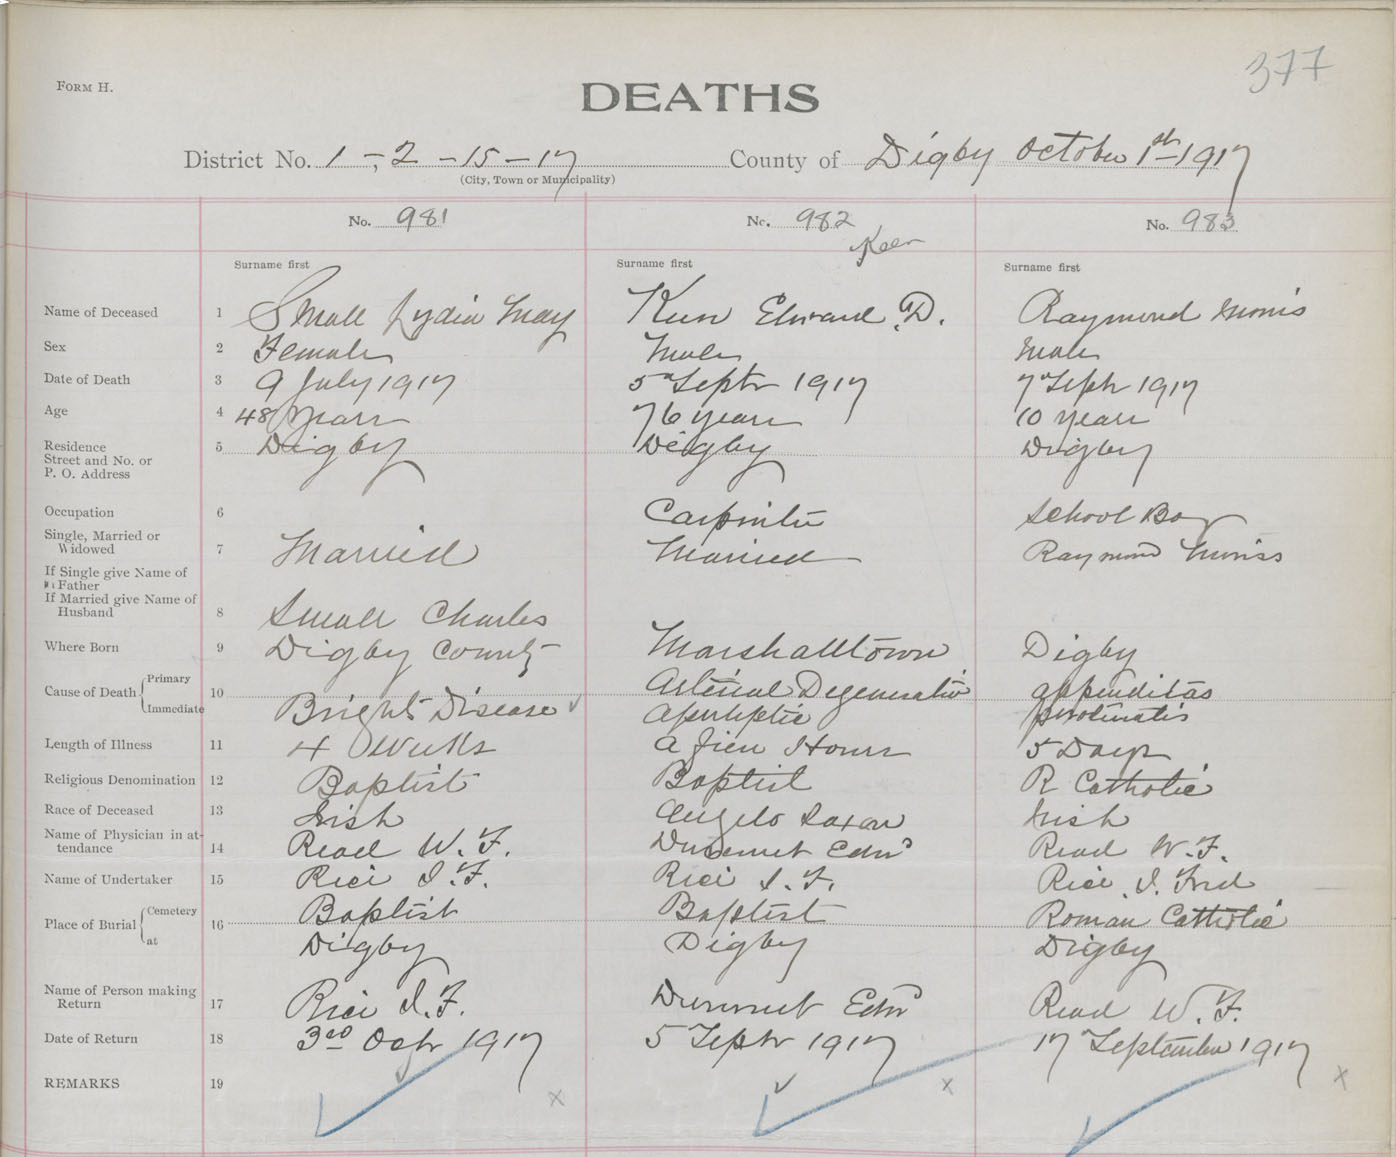 377
FORM H.
DEATHS
District No. 1-2-15-17 County of Digby October 1st-1917
(City, Town or Municipality)
No. 981 No. 982 No. 983
Keen
Surname first Surname first Surname first
Name of Deceased 1 Small Lydia May Edward D. Raymond Morris
Sex 2 Female Male Male
Date of Death 3 9 July 1917 5 Septr 1917 7 Septr 1917
Age 4 48 Years 76 years 10 years
Residence 5 Digby Digby Digby
Street and No. or
P. O. Address
Occupation 6 Carpenter School Boy
Single, Married or
Widowed 7 Married Married Raymond Morriss
If Single give Name of
Father
If Married give Name of
Husband 8 Small Charles
Where Born 9 Digby County Marshalltown Digby
Cause of Death Primary 10 Arterial Degeneration appenditas
Immediate Brights Disease
Length of Illness 11 4 Weeks a few Hours 5 Days
Religious Denomination 12 Baptist Baptist R Catholic
Race of Deceased 13 Irish Anglo Saxon Irish
Name of Physician in at-
tendance 14 Read W. F. Read W. F.
Name of Undertaker 15 Rice I. F. Rice I. F. Rice I. Fred
Place of Burial Cemetery 16 Baptist Baptist Roman Catholic
at Digby Digby Digby
Name of Person making
Return 17 Rice I. F. Read W. F.
Date of Return 18 3rd Octr 1917 5 Septr 1917 17 September 1917
REMARKS 19 x x x